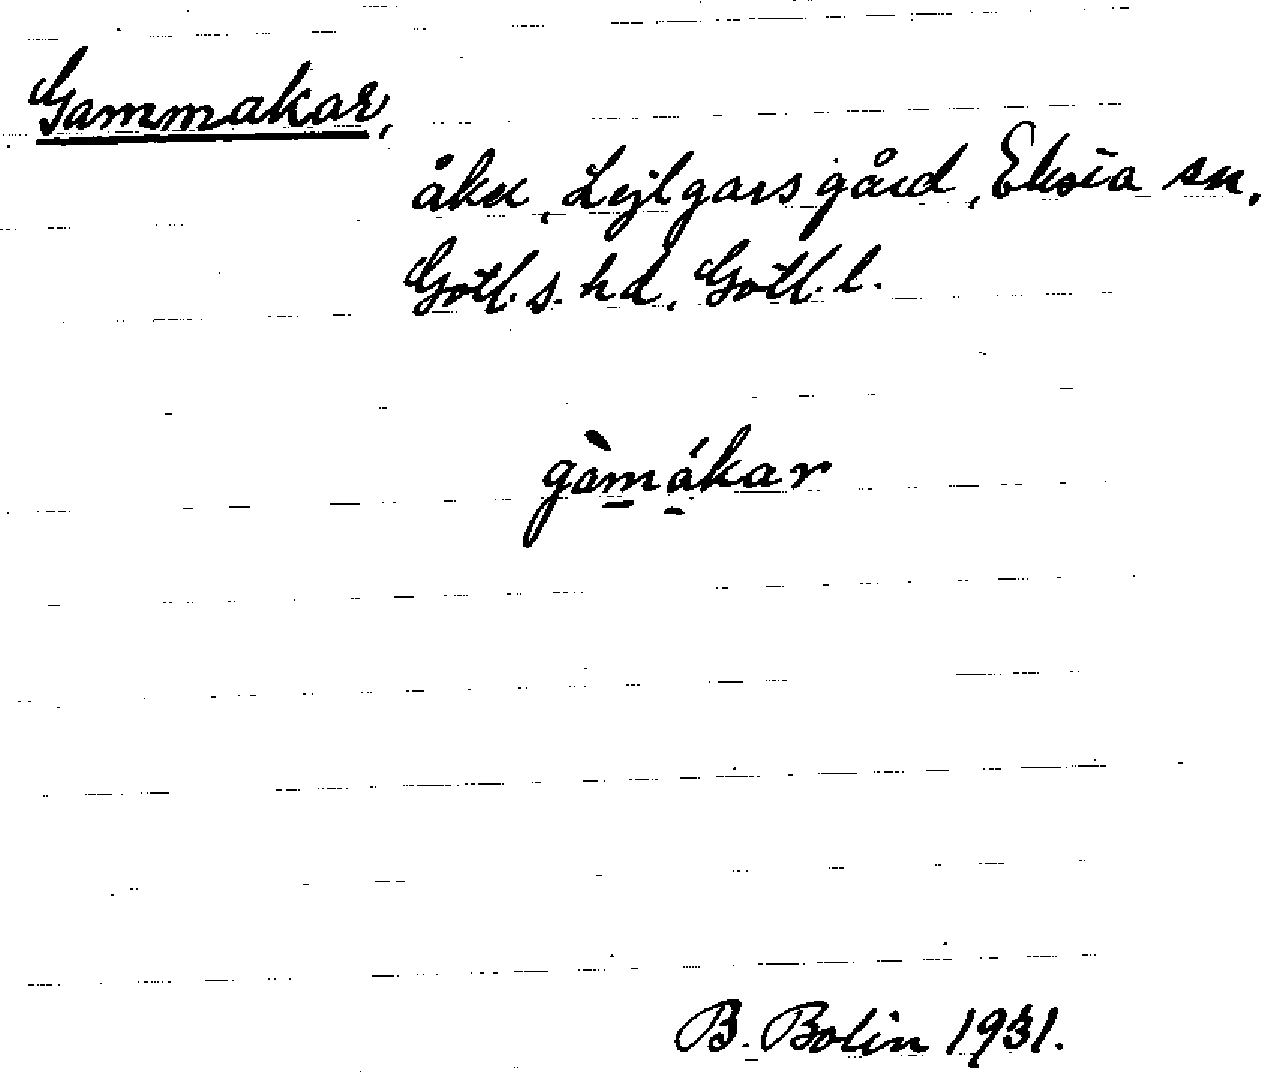 Gammakar,
åker, Lejlgarsgård, Eksta sn,
Gotl. s. hd, Gotl. l.
gàmákar
B. Bolin 1931.